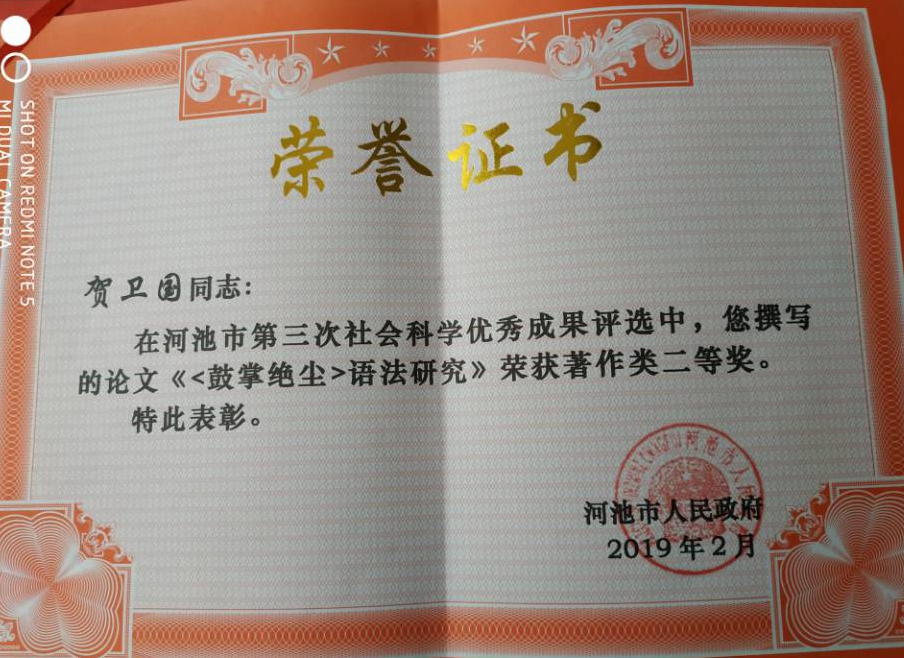 荣誉证书
贺卫国同志：
在河池市第三次社会科学优秀成果评选中，您撰写
的论文《<鼓掌绝尘>语法研究》荣获著作类二等奖。
特此表彰。
河池市人民政府
2019年2月
SHOT ON REDMI NOTE 5
MI DUAL CAMERA
河池市人民